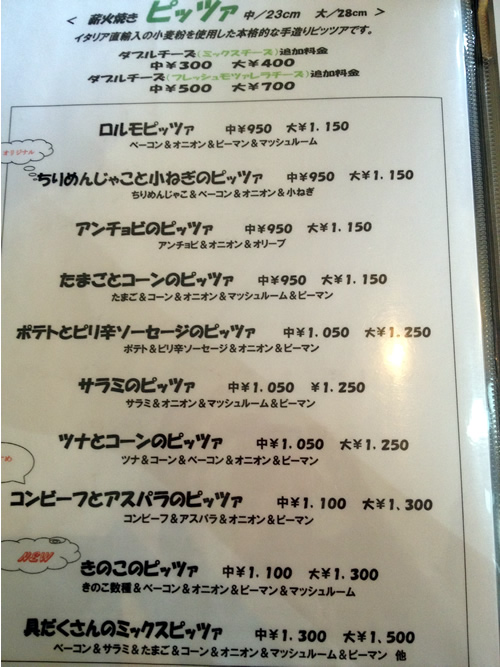 ＜ 薪火焼き ピッツァ 中／23cm 大／28cm ＞
イタリア直輸入の小麦粉を使用した本格的な手造りピッツアです。
ダブルチーズ（ミックスチーズ）追加料金
中￥300 大￥400
ダブルチーズ（フレッシュモツァレラチーズ）追加料金
中￥500 大￥700
ロルモピッツァ 中￥950 大￥1．150
ベーコン＆オニオン＆ピーマン＆マッシュルーム
オリジナル
ちりめんじゃこと小ねぎのピッツァ 中￥950 大￥1．150
ちりめんじゃこ＆ベーコン＆オニオン＆小ねぎ
アンチョビのピッツァ 中￥950 大￥1．150
アンチョビ＆オニオン＆オリーブ
たまごとコーンのピッツァ 中￥950 大￥1．150
たまご＆コーン＆オニオン＆マッシュルーム＆ピーマン
ポテトとピリ辛ソーセージのピッツァ 中￥1．050 大￥1．250
ポテト＆ピリ辛ソーセージ＆オニオン＆ピーマン
サラミのピッツァ 中￥1．050 ￥1．250
サラミ＆オニオン＆マッシュルーム＆ピーマン
ツナとコーンのピッツァ 中￥1．050 大￥1．250
ツナ＆コーン＆ベーコン＆オニオン＆ピーマン
め
コンビーフとアスパラのピッツァ 中￥1．100 大￥1、300
コンビーフ＆アスパラ＆オニオン＆ピーマン
NEW
きのこのピッツァ 中￥1．100 大￥1．300
きのこ数種＆ベーコン＆オニオン＆ピーマン＆マッシュルーム
具だくさんのミックスピッツァ 中￥1．300 大￥1，500
ベーコン＆サラミ＆たまご＆コーン＆オニオン＆マッシュルーム＆ピーマン 他